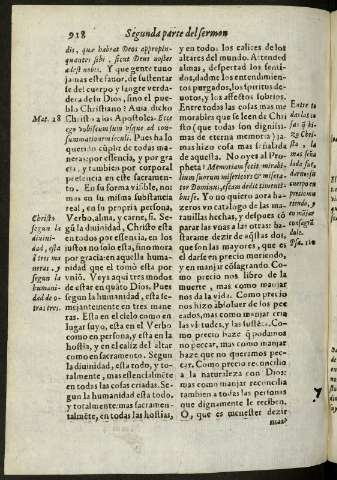 918
Segunda parte del sermon
dis, que habeat Deos appropin-
quantes sibi, sicut Deus noster
adest nobis. Y que gente tuuo
jamas este fauor, de sustentar
se del cuerpo y sangre verda
dera de su Dios, sino el pue-
blo Christiano? Auia dicho
Mat. 28
Christo a los Apostoles. Ecce
ego vobiscum sum vsque ad con-
summationem seculi. Pues ha lo
querido cūplir de todas ma-
neras, por essencia, y por gra
cia, y tambien por corporal
presencia en este sacramen-
to. En su forma visible, no:
mas en su misma substancia
real, y en su propria persona,
Verbo, alma, y carne, si. Se-
gū la diuinidad, Christo està
en todos por essencia, en los
justos no solo esta, sino mora
por gracia: en aquella huma-
nidad que el tomò està por
vniō. Veys aqui tres modos
de estar en quāto Dios. Pues
segun la humanidad, esta se-
mejantemente en tres mane
ras. Està en el cielo como en
lugar suyo, està en el Verbo
como en persona, y està en la
hostia, y en el caliz del altar
como en sacramento. Segun
la diuinidad, està todo, y to-
talmente, mas essencialmēte
en todas las cosas criadas. Se-
gun la humanidad està todo,
y totalmente: mas sacramen-
talmēte, en todas las hostias,
Christo
segun la
diuini-
dad, està
a tres ma
neras, y
segun la
humani-
dad de o-
tras tres.
y en todos los calices de los
altares del mundo. Attended
almas, despertad los senti-
dos, dadme los entendimien-
tos purgados, los spiritus de-
uotos, y los affectos sobrios.
Entre todas las cosas mas me
morables que se leen de Chri
sto (que todas son dignissi-
mas de eterna memoria) la
mas hizo cosa mas señalada
de aquesta. No oyes al Pro-
pheta? Memoriam fecit mirabi-
lium suorum misericors & misera-
tor Dominus, escam dedit timenti-
bus se. Yo no quiero aora ha-
zeros vn catalogo de las ma-
rauillas hechas, y despues cō
parar las vnas a las otras: ba-
starame dezir de aq̄stas dos,
que son las mayores, que es
el darse en precio moriendo,
y en manjar cōsagrando. Co-
mo precio nos libro de la
muerte, mas como manjar
nos da la vida. Como precio
nos hizo absoluer de los pec
cados, mas como manjar cria
las vtudes, y las sustēta. Co-
mo precio haze q̄ podamos
no peccar, mas como manjar
haze que no queramos pec-
car. Como precio reconcilio
a la naturaleza con Dios:
mas como manjar reconcilia
tambien a todas las personas
que dignamente le reciben.
O, que es menester dezir
mas?
Psa. 110